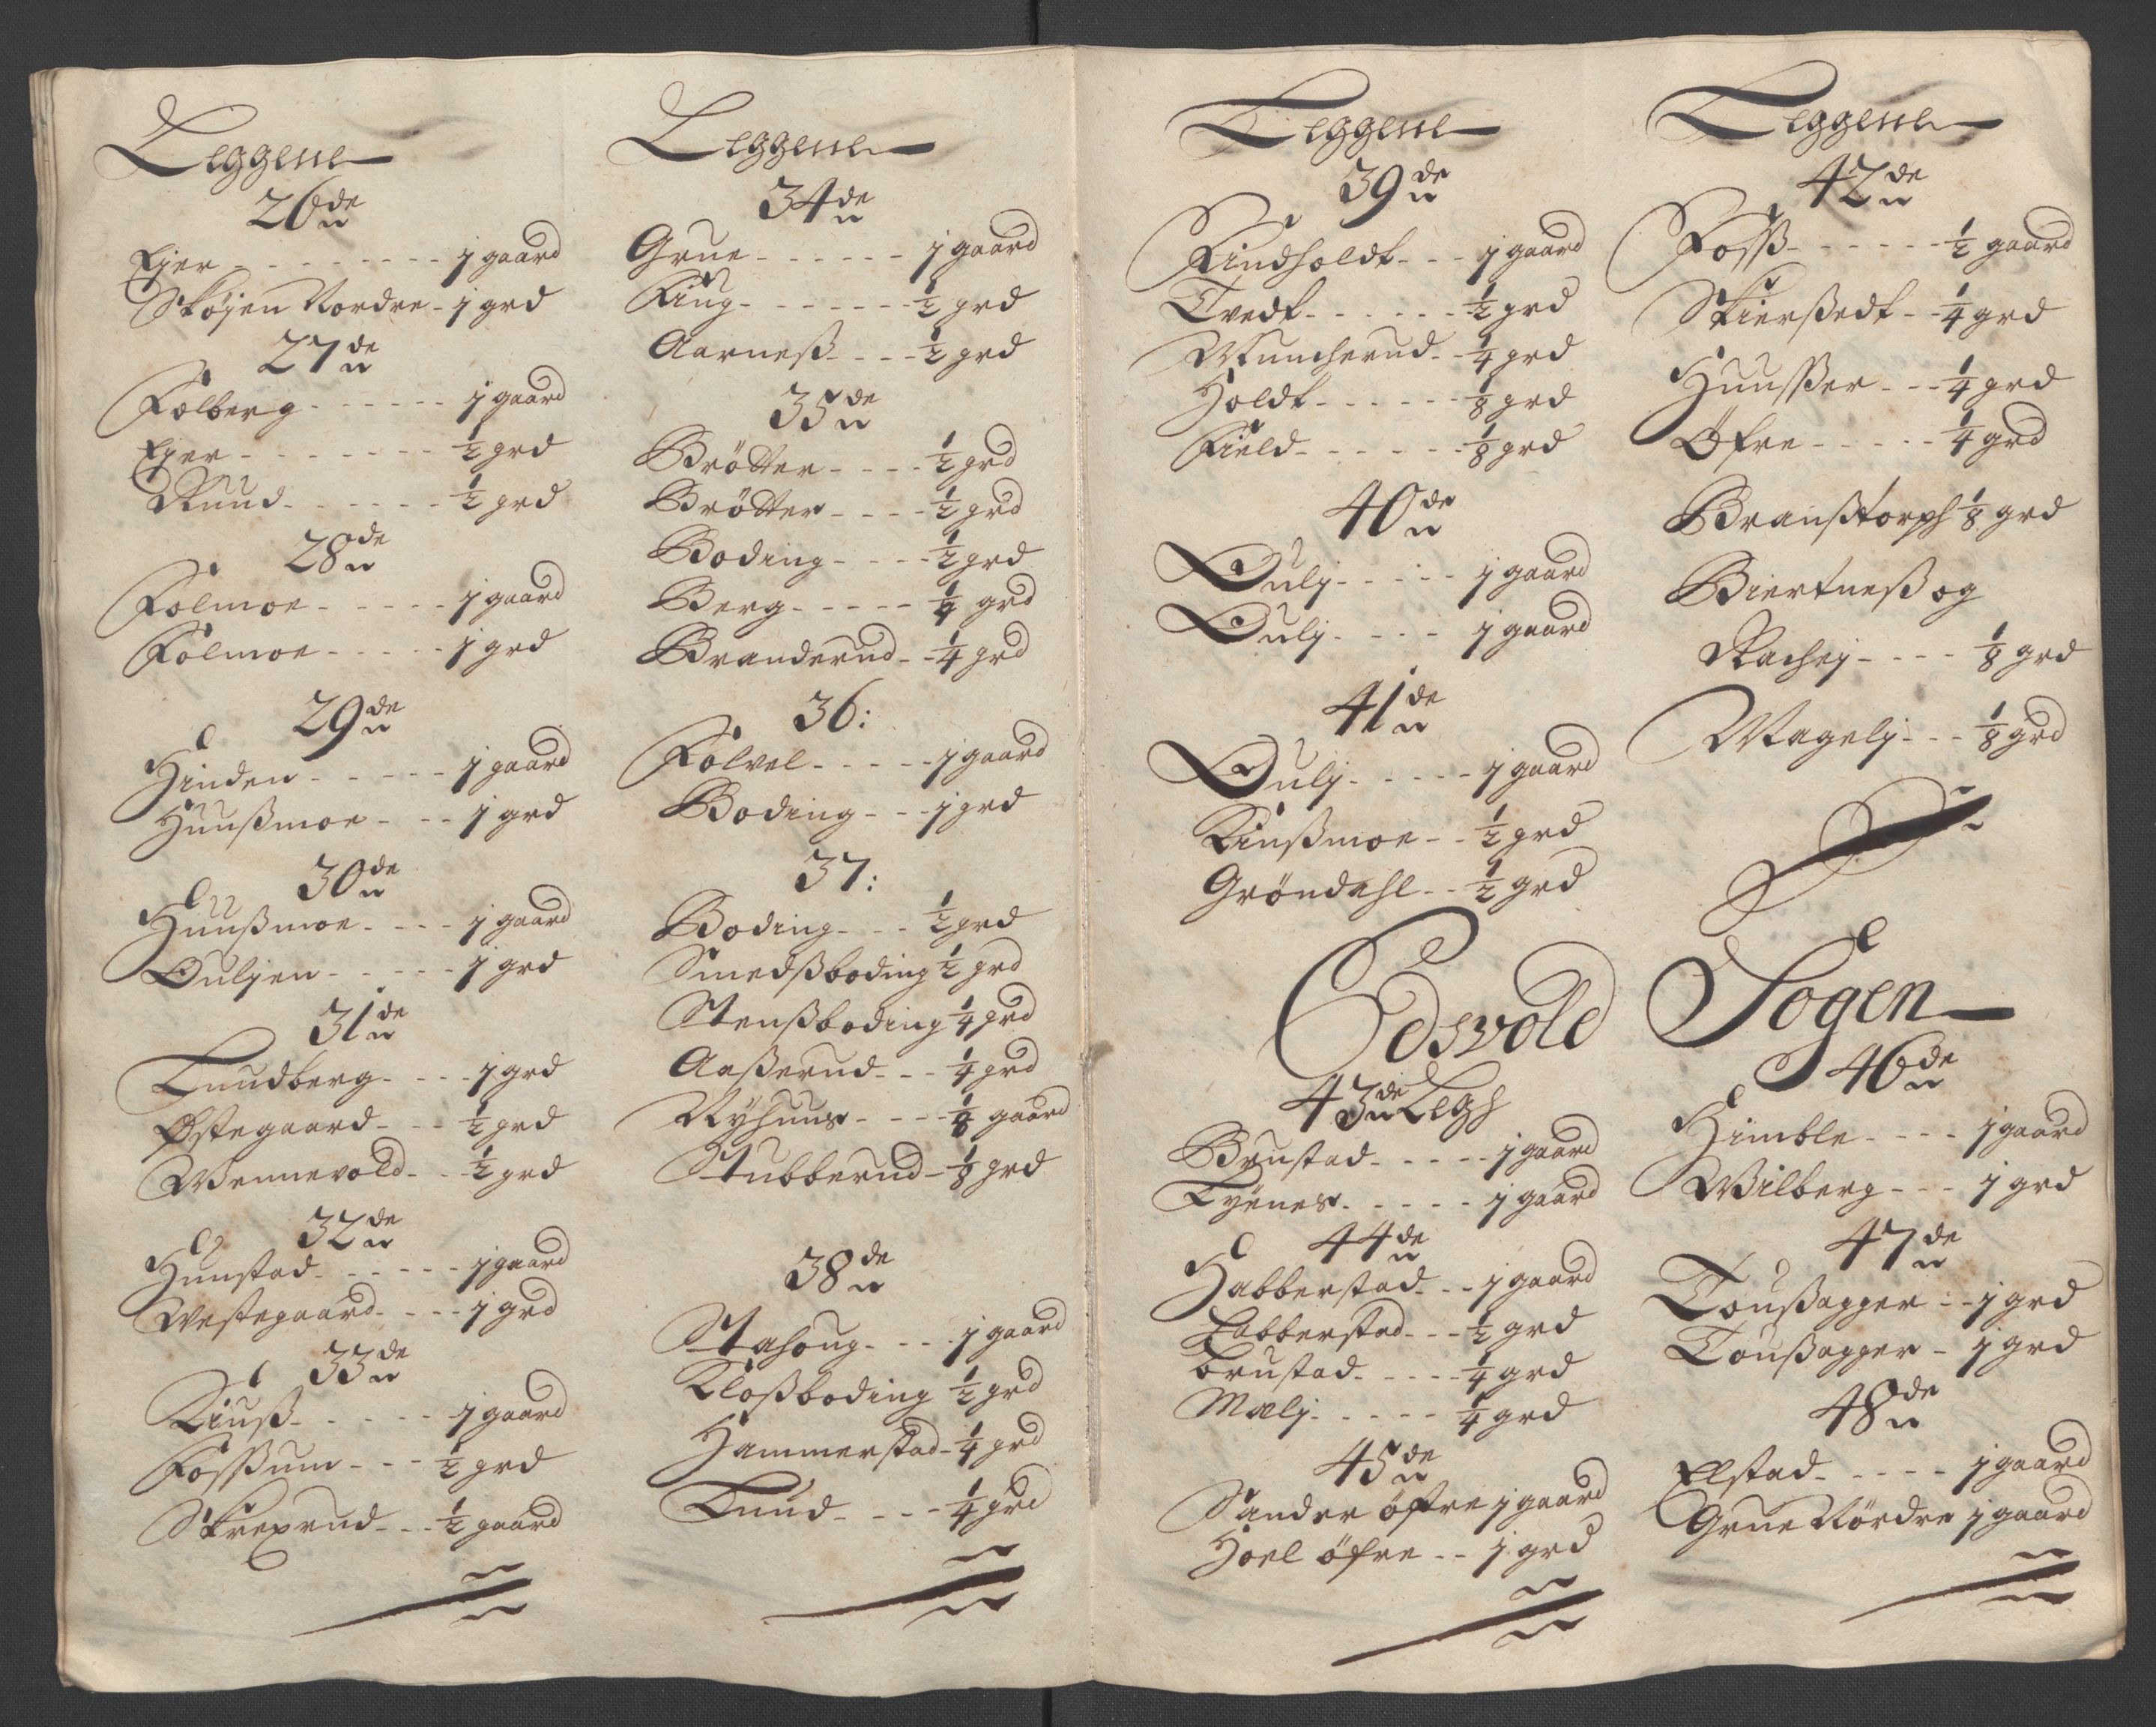 Leggene
26de
Ejer - - - - - - - - - j gaard
Skøyen Nordre - j grd
27de
Folberg - - - - - - j gaard
Ejer - - - - - - - ½ grd
Ruud - - - - - - ½ grd
28de
Folmoe - - - - - j gaard
Folmoe - - - - - j grd
29de
Hinden - - - - - j gaard
Huußmoe - - - j grd
30de
Huußmoe - - - - j gaard
Ouljen - - - - - j grd
31de
Tuudberg - - - - j grd
Østegaard - - - ½ grd
Wennevold - - ½ grd
32de
Hunstad - - - - - j gaard
Westegaard - - - - j grd
33de
Liuß - - - - - j gaard
Foßum - - - ½ grd
Skrexrud - - - ½ gaard
Leggene
34de
Grue - - - - - - j gaard
Ring - - - - - - - ½ grd
Aarneß - - - - ½ grd
35de
Brötter - - - - ½ grd
Brötter - - - - ½ grd
Boding - - - - ½ grd
Berg - - - - - ¼ grd
Branderud - - ¼ grd
36:
Folvel - - - - - j gaard
Boding - - - j grd
37:
Boding - - - ½ grd
Smedßboding ½ grd
Stenßboding ¼ grd
Aaßerud - - - ¼ grd
Nyhuus - - - - ⅛ gaard
Stubberud - ⅛ grd
38de
Stahoug - - - - j gaard
Kloßboding ½ grd
Hammerstad - ¼ grd
Tuud - - - - ¼ grd
Leggene
39de
Findholdt - - - j gaard
Tvedt - - - - - - ½ grd
Muncherud - - ¼ grd
Holdt - - - - - - ⅛ grd
Field - - - - - - ⅛ grd
40de
Oulj - - - - - j gaard
Oulj - - - - j gaard
41de
Oulj - - - - - j gaard
Liußmoe - - ½ grd
Gröndahl - - ½ grd
Edsvold Sogen
43de Legh
Brustad - - - - - j gaard
Tyënes - - - - - j gaard
44de
Habberstad - - - j gaard
Habberstad - - - ½ grd
Brustad - - - - - ¼ grd
Mælj - - - - - ¼ grd
45de
Sander öfre j gaard
Hoel öfre - - j grd
Leggene
42de
Foß - - - - - - ½ gaard
Skierßedt - - ¼ grd
Huußer - - - ¼ grd
Öfre - - - - - ¼ grd
Branßtorph ⅛ grd
Biertneß og
Rachej - - - - ⅛ grd
Magelj - - - ⅛ grd
46de
Himble - - - - j gaard
Wilberg - - - j grd
47de
Toußagger - - j grd
Toußagger - j grd
48de
Elstad - - - - - j gaard
Grue Nördre j gaard